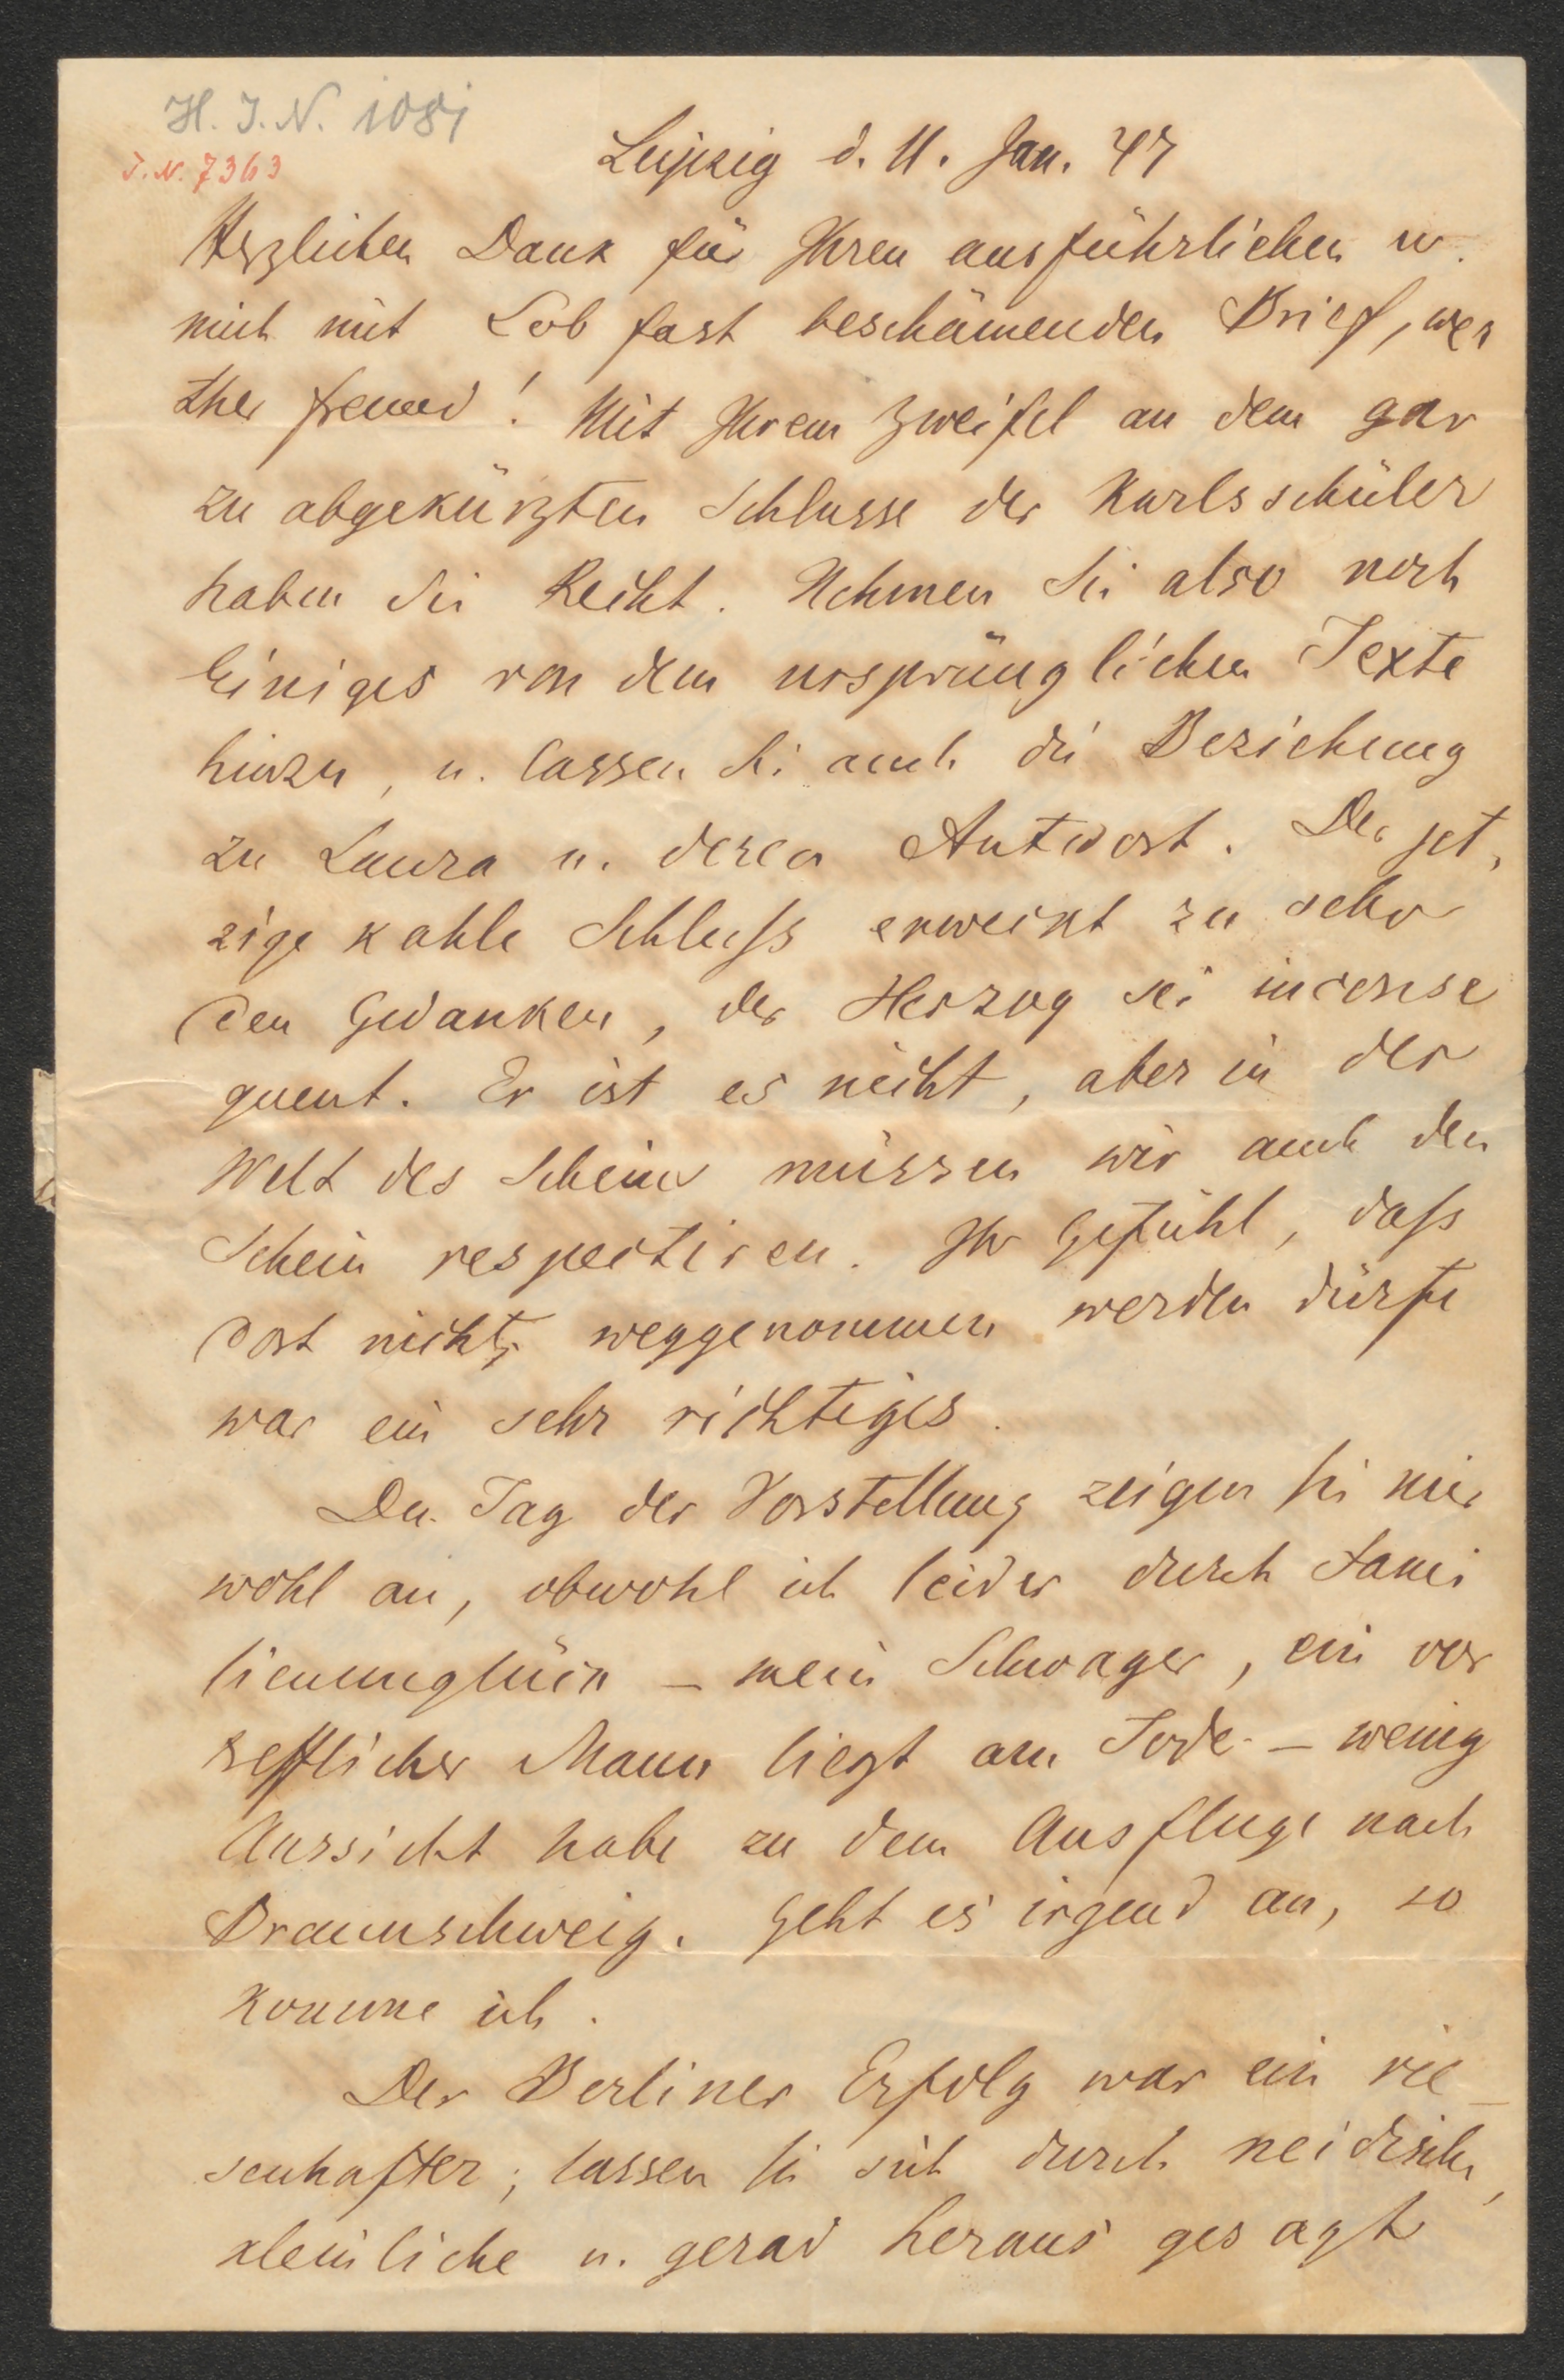 H. I. N. 1081
I. N. 7363
Leipzig d. 11. Jan. 47
Herzlichen Dank für Ihren ausführlichen u.
mich mit Lob fast beschämenden Brief, wer
ther Freund! Mit Ihrem Zweifel an dem gar
zu abgekürzten Schlusse der Karlsschüler
haben Sie Recht. Nehmen Sie also noch
Einiges von dem ursprünglichen Texte
hinzu, u. lassen Sie auch die Beziehung
zu Laura u. deren Antwort. Der jet,
zige kahle Schluß erweckt zu sehr
den Gedanken, der Herzog sei inconse
quent. Er ist es nicht, aber in der
Welt des Scheins müssen wir auch den
Schein respectiren. Ihr Gefühl, daß
dort nichts weggenommen werden dürfe
war ein sehr richtiges.
Den Tag der Vorstellung zeigen Sie mir
wohl an, obwohl ich leider durch Fami
lienunglück – mein Schwager, ein vor
trefflicher Mann liegt am Tode – wenig
Aussicht habe zu dem Ausfluge nach
Braunschweig. Geht es irgend an, so
komme ich.
Der Berliner Erfolg war ein rie_
senhafter; lassen Sie sich durch neidische,
kleinliche u. gerad heraus gesagt